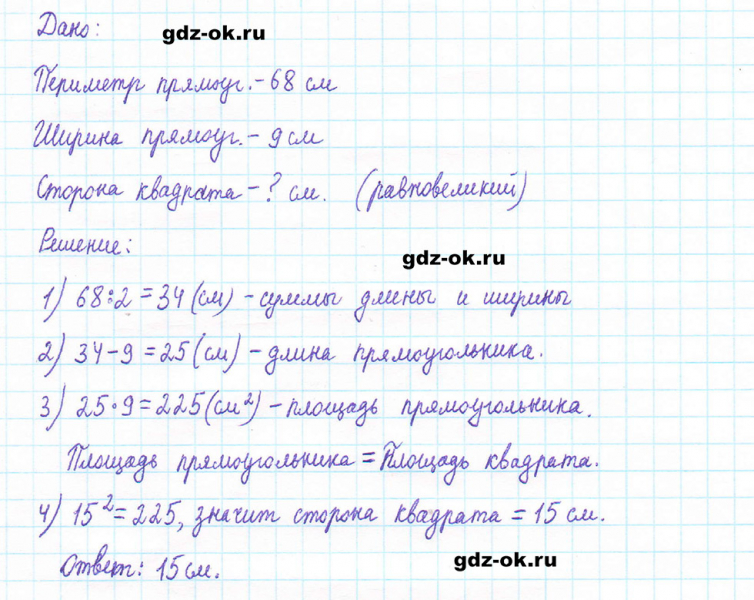 Дано:
gdz-ok.ru
Периметр прямоуг. - 68 см
Ширина прямоуг. - 9 см
Сторона квадрата - ? см. (равновеликий)
Решение:
gdz-ok.ru
1) 68:2=34 (см) - суммы длины и ширины
2) 34-9=25 (см) - длина прямоугольника.
3) 25·9=225 (см²) - площадь прямоугольника.
Площадь прямоугольника = Площадь квадрата.
4) 15²=225, значит сторона квадрата = 15 см.
Ответ: 15 см.
gdz-ok.ru